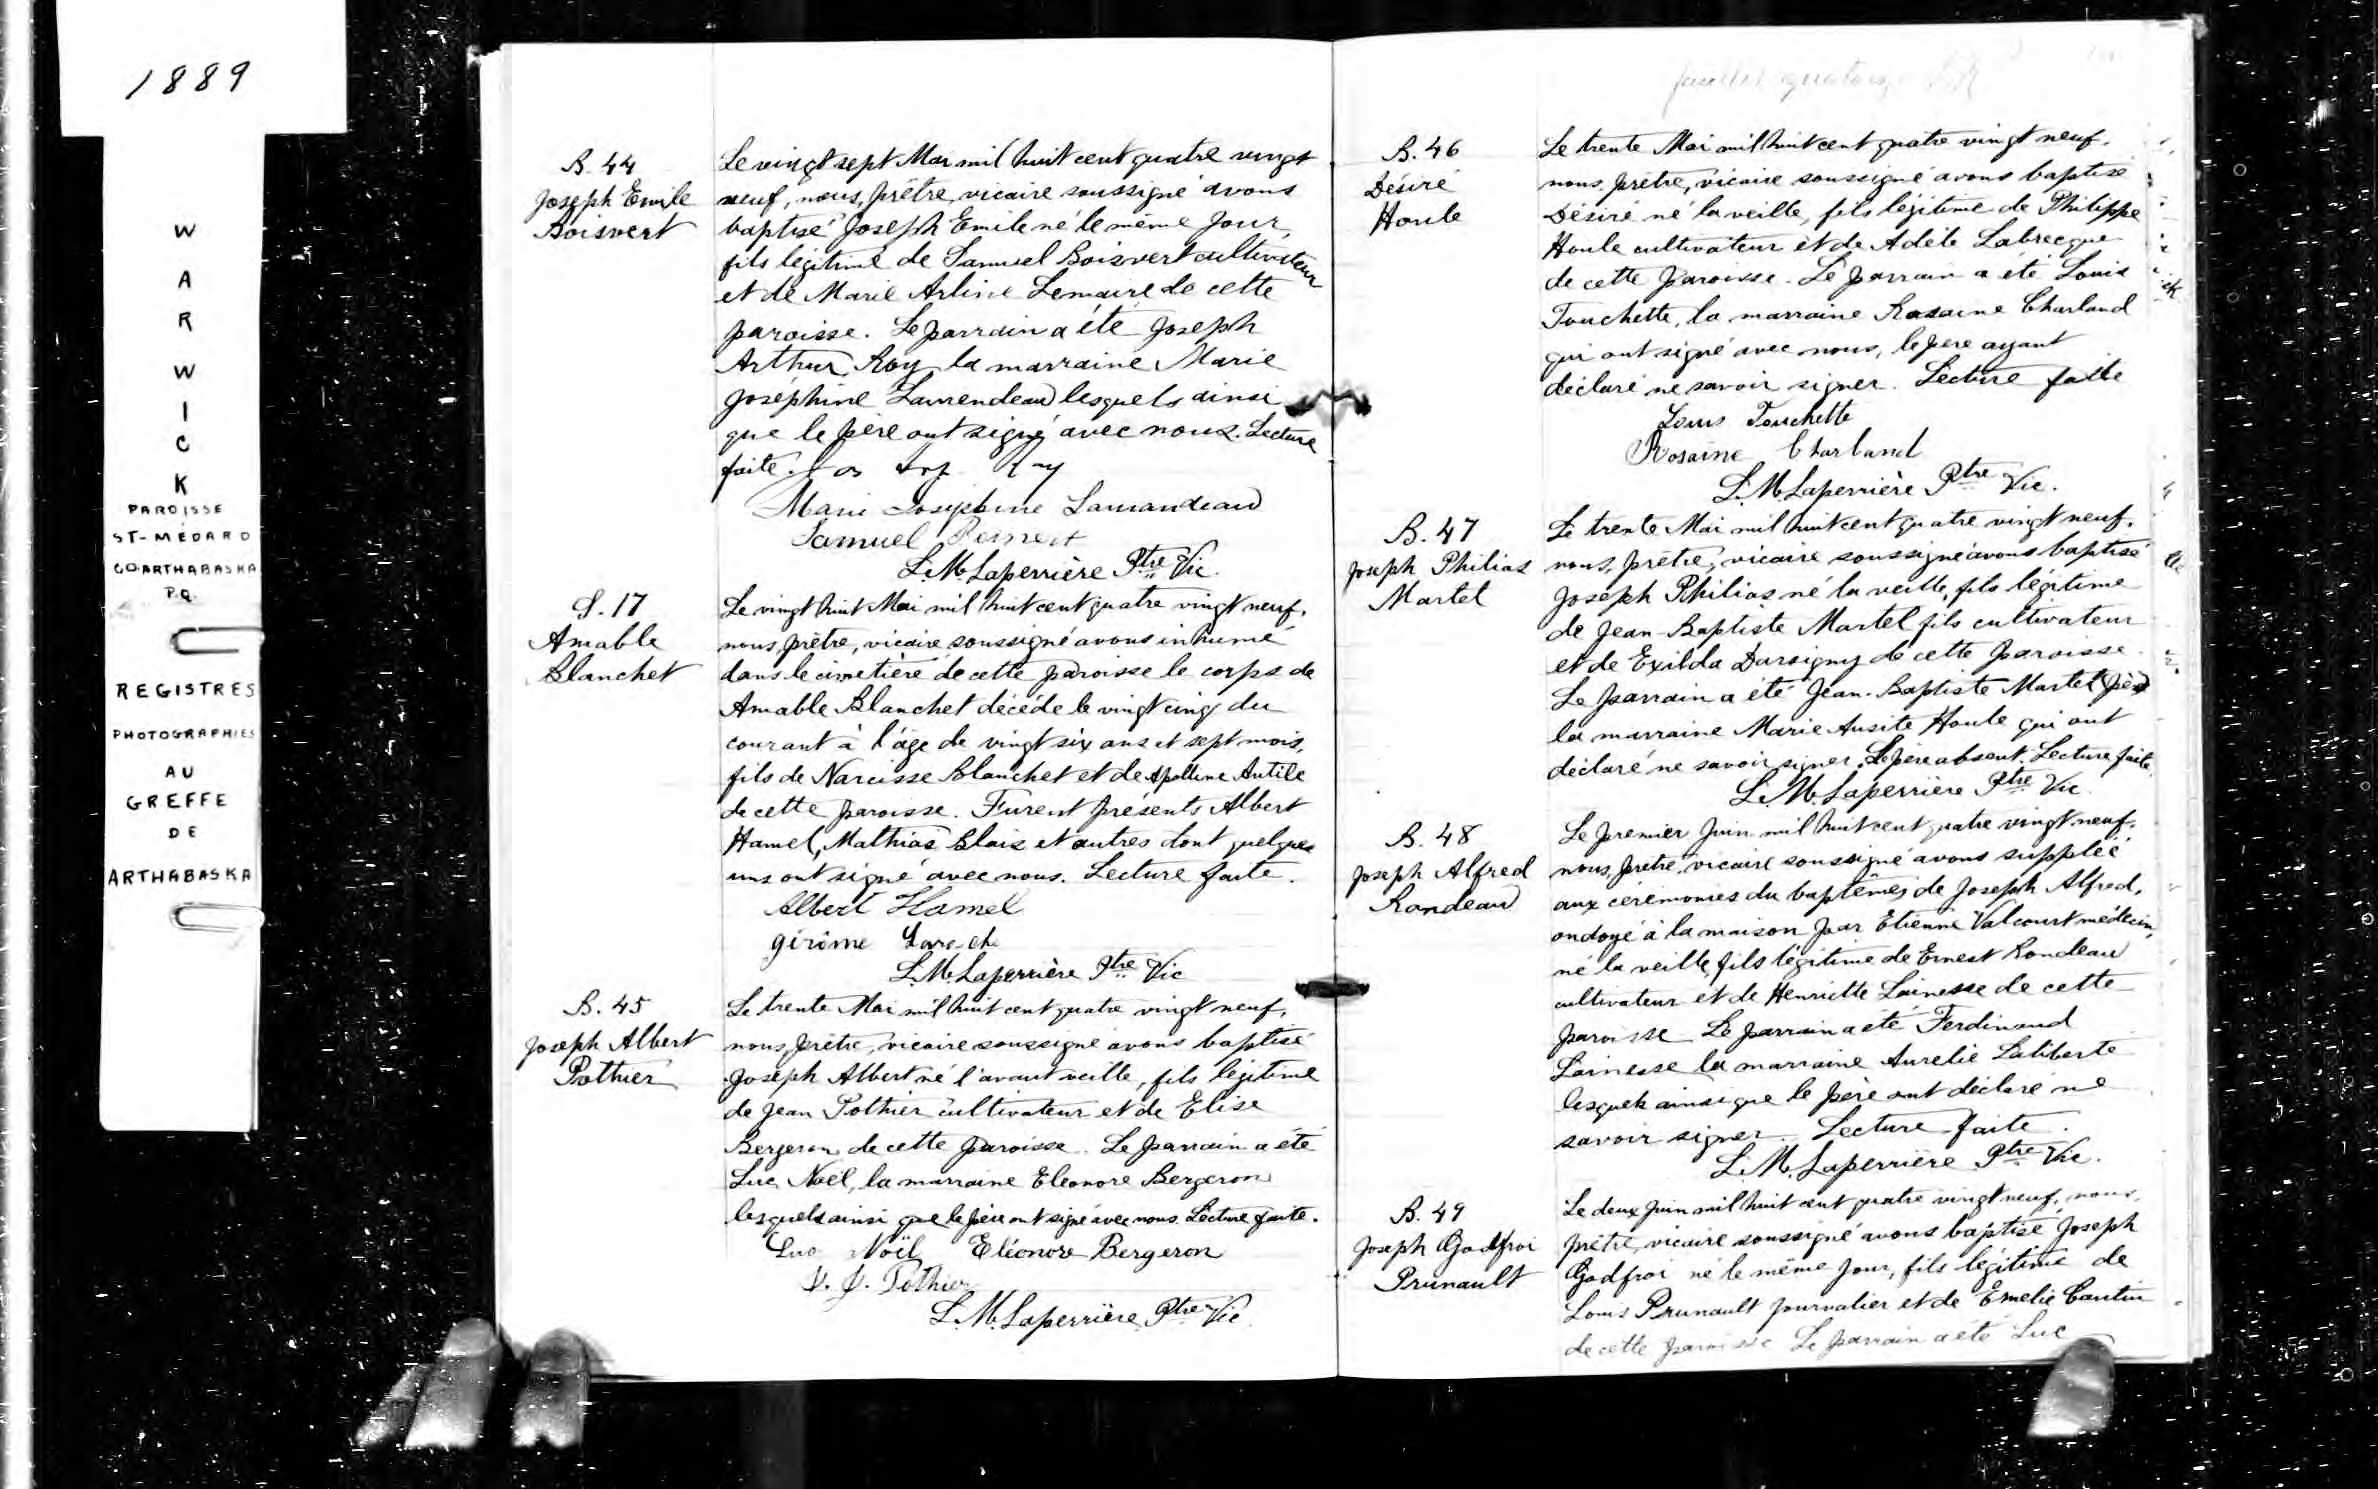 1889
WARWICK
PAROISSE
ST-MÉDARD
CO. ARTHABASKA
P.Q.
REGISTRES
PHOTOGRAPHIES
AU
GREFFE
DE
ARTHABASKA
B. 44
Joseph Emile
Boisvert
Le vingt sept Mai mil huit cent quatre vingt
neuf, nous, prêtre, vicaire soussigné avons
baptisé Joseph Emile né le même jour,
fils légitime de Samuel Boisvert cultivateur
et de Marie Lemaire de cette
paroisse. Le parrain a été Joseph
Arthur Roy la marraine Marie
Joséphine Laurendeau lesquels ainsi
que le père ont signé avec nous. Lecture
faite. Jos Roy
Marie Josephine Laurandeau
Samuel
L. M. Laperrière Ptre Vic.
S. 17
Amable
Blanchet
Le vingt huit Mai mil huit cent quatre vingt neuf,
nous, prêtre, vicaire soussigné avons inhumé
dans le cimetière de cette paroisse le corps de
Amable Blanchet décédé le vingt cinq du
courant à l'âge de vingt six ans et sept mois,
fils de Narcisse Blanchet et de Apolline Autile
de cette paroisse. Furent présents Albert
Hamel, Mathias Blais et autres dont quelques
uns ont signé avec nous. Lecture faite.
Albert Hamel
Gérôme
L. M. Laperrière Ptre Vic
B. 45
Joseph Albert
Pothier
Le trente Mai mil huit cent quatre vingt neuf,
nous, prêtre, vicaire soussigné avons baptisé
Joseph Albert né l'avant veille, fils légitime
de Jean Pothier cultivateur et de Elise
Bergeron de cette paroisse. Le parrain a été
Luc Noël, la marraine Eléonore Bergeron
lesquels ainsi que le père ont signé avec nous. Lecture faite.
Luc Noël Eléonore Bergeron
J. Pothier
L. M. Laperrière Ptre Vic.
feuillet quatorze
B. 46
Désiré
Houle
Le trente Mai mil huit cent quatre vingt neuf,
nous, prêtre, vicaire soussigné avons baptisé
Désiré né la veille, fils légitime de Philippe
Houle cultivateur et de Adèle Labrecque
de cette paroisse. Le parrain a été Louis
Touchette, la marraine Rosaine Charland
qui ont signé avec nous, le père ayant
déclaré ne savoir signer. Lecture faite
Louis Touchette
Rosaine Charland
L. M. Laperrière Ptre Vic.
B. 47
Joseph Philias
Martel
Le trente Mai mil huit cent quatre vingt neuf,
nous, prêtre, vicaire soussigné avons baptisé
Joseph Philias né la veille, fils légitime
de Jean-Baptiste Martel fils cultivateur
et de Exilda Darsigny de cette paroisse.
Le parrain a été Jean-Baptiste Martel père
la marraine Marie Ausite Houle qui ont
déclaré ne savoir signer. Le père absent. Lecture faite.
L. M. Laperrière Ptre Vic.
B. 48
Joseph Alfred
Rondeau
Le premier Juin mil huit cent quatre vingt neuf,
nous, prêtre, vicaire soussigné avons suppléé
aux cérémonies du baptême de Joseph Alfred,
ondoyé à la maison par Etienne Valcourt médecin,
né la veille, fils légitime de Ernest Rondeau
cultivateur et de Henriette Lainesse de cette
paroisse Le parrain a été Ferdinand
Lainesse la marraine Aurelie Laliberte
lesquels ainsi que le père ont déclaré ne
savoir signer. Lecture faite.
L. M. Laperrière Ptre Vic.
B. 49
Joseph Godfroi
Prunault
Le deux Juin mil huit cent quatre vingt neuf, nous,
prêtre, vicaire soussigné avons baptisé Joseph
Godfroi né le même jour, fils légitime de
Louis Prunault journalier et de Emelie Cantin
de cette paroisse Le parrain a été Luc